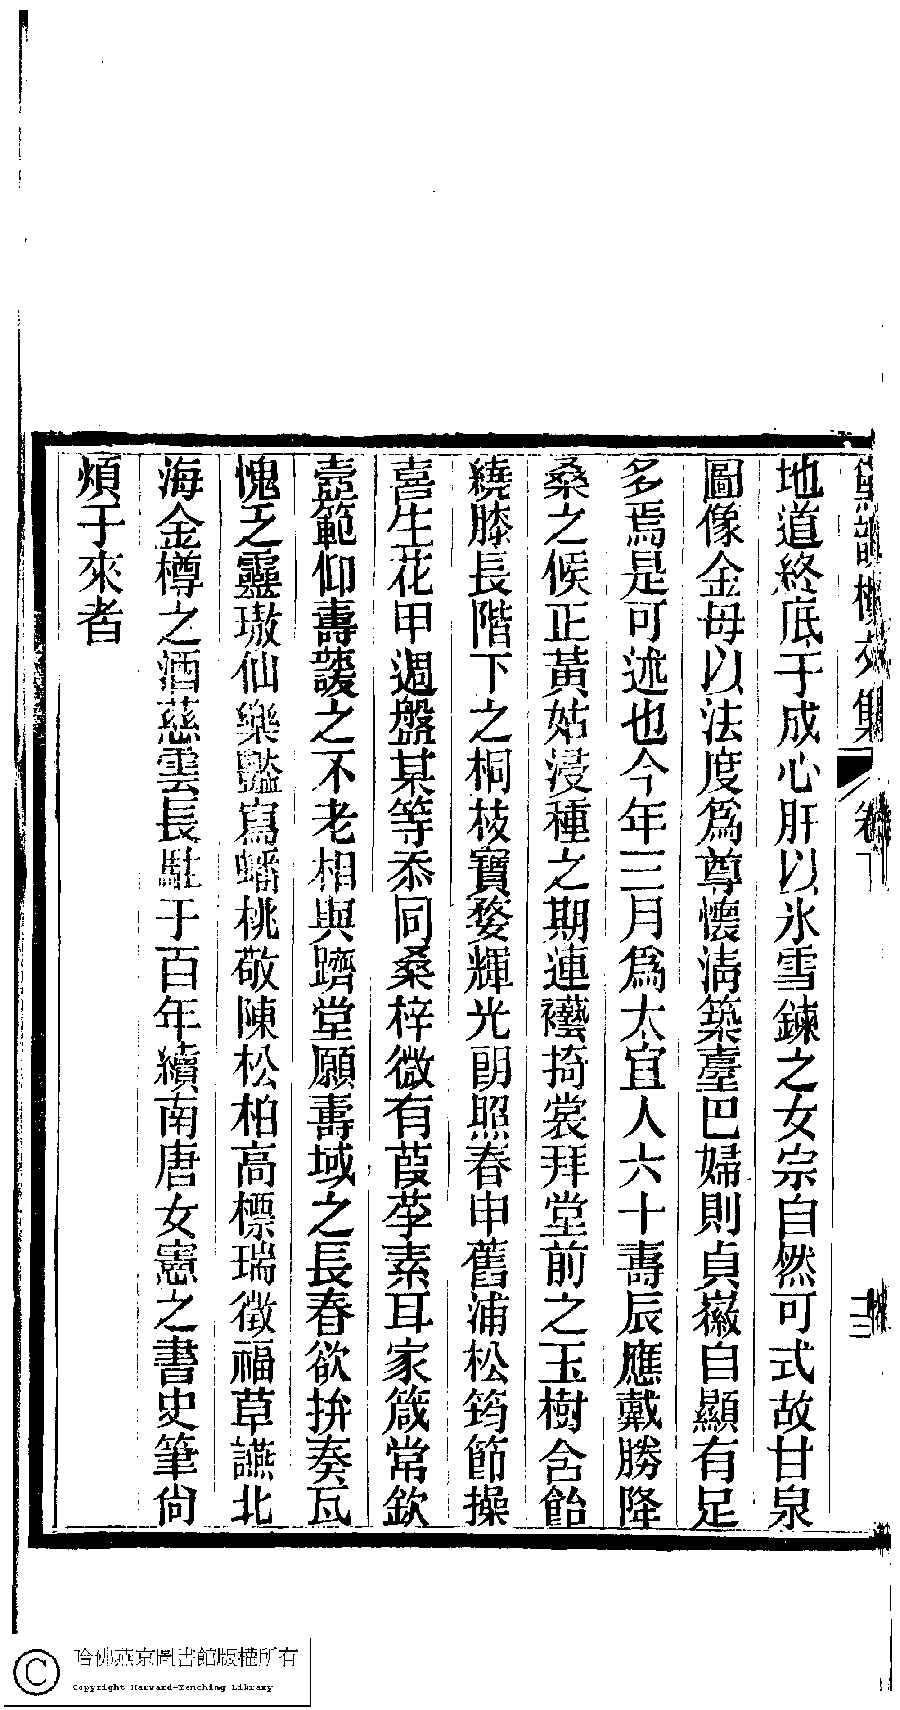 黛韻樓文集 卷下 三
地道終底于成心肝以氷雪鍊之女宗自然可式故甘泉
圖像金母以法度爲尊懷淸築臺巴婦則貞徽自顯有足
多焉是可述也今年三月爲太宜人六十壽辰應戴勝降
桑之候正黃姑浸種之期連襼掎裳拜堂前之玉樹含飴
繞膝長階下之桐枝寶婺輝光朗照春申舊浦松筠節操
喜生花甲週盤某等忝同桑梓微有葭莩素耳家箴常欽
壼範仰壽護之不老相與躋堂願壽域之長春欲拚奏瓦
愧乏靈璈仙樂豔寫蟠桃敬陳松柏高標瑞徵福草讌北
海金樽之酒慈雲長駐于百年續南唐女憲之書史筆尙
煩于來者
哈佛燕京圖書館版權所有
Copyright Harvard-Yenching Library